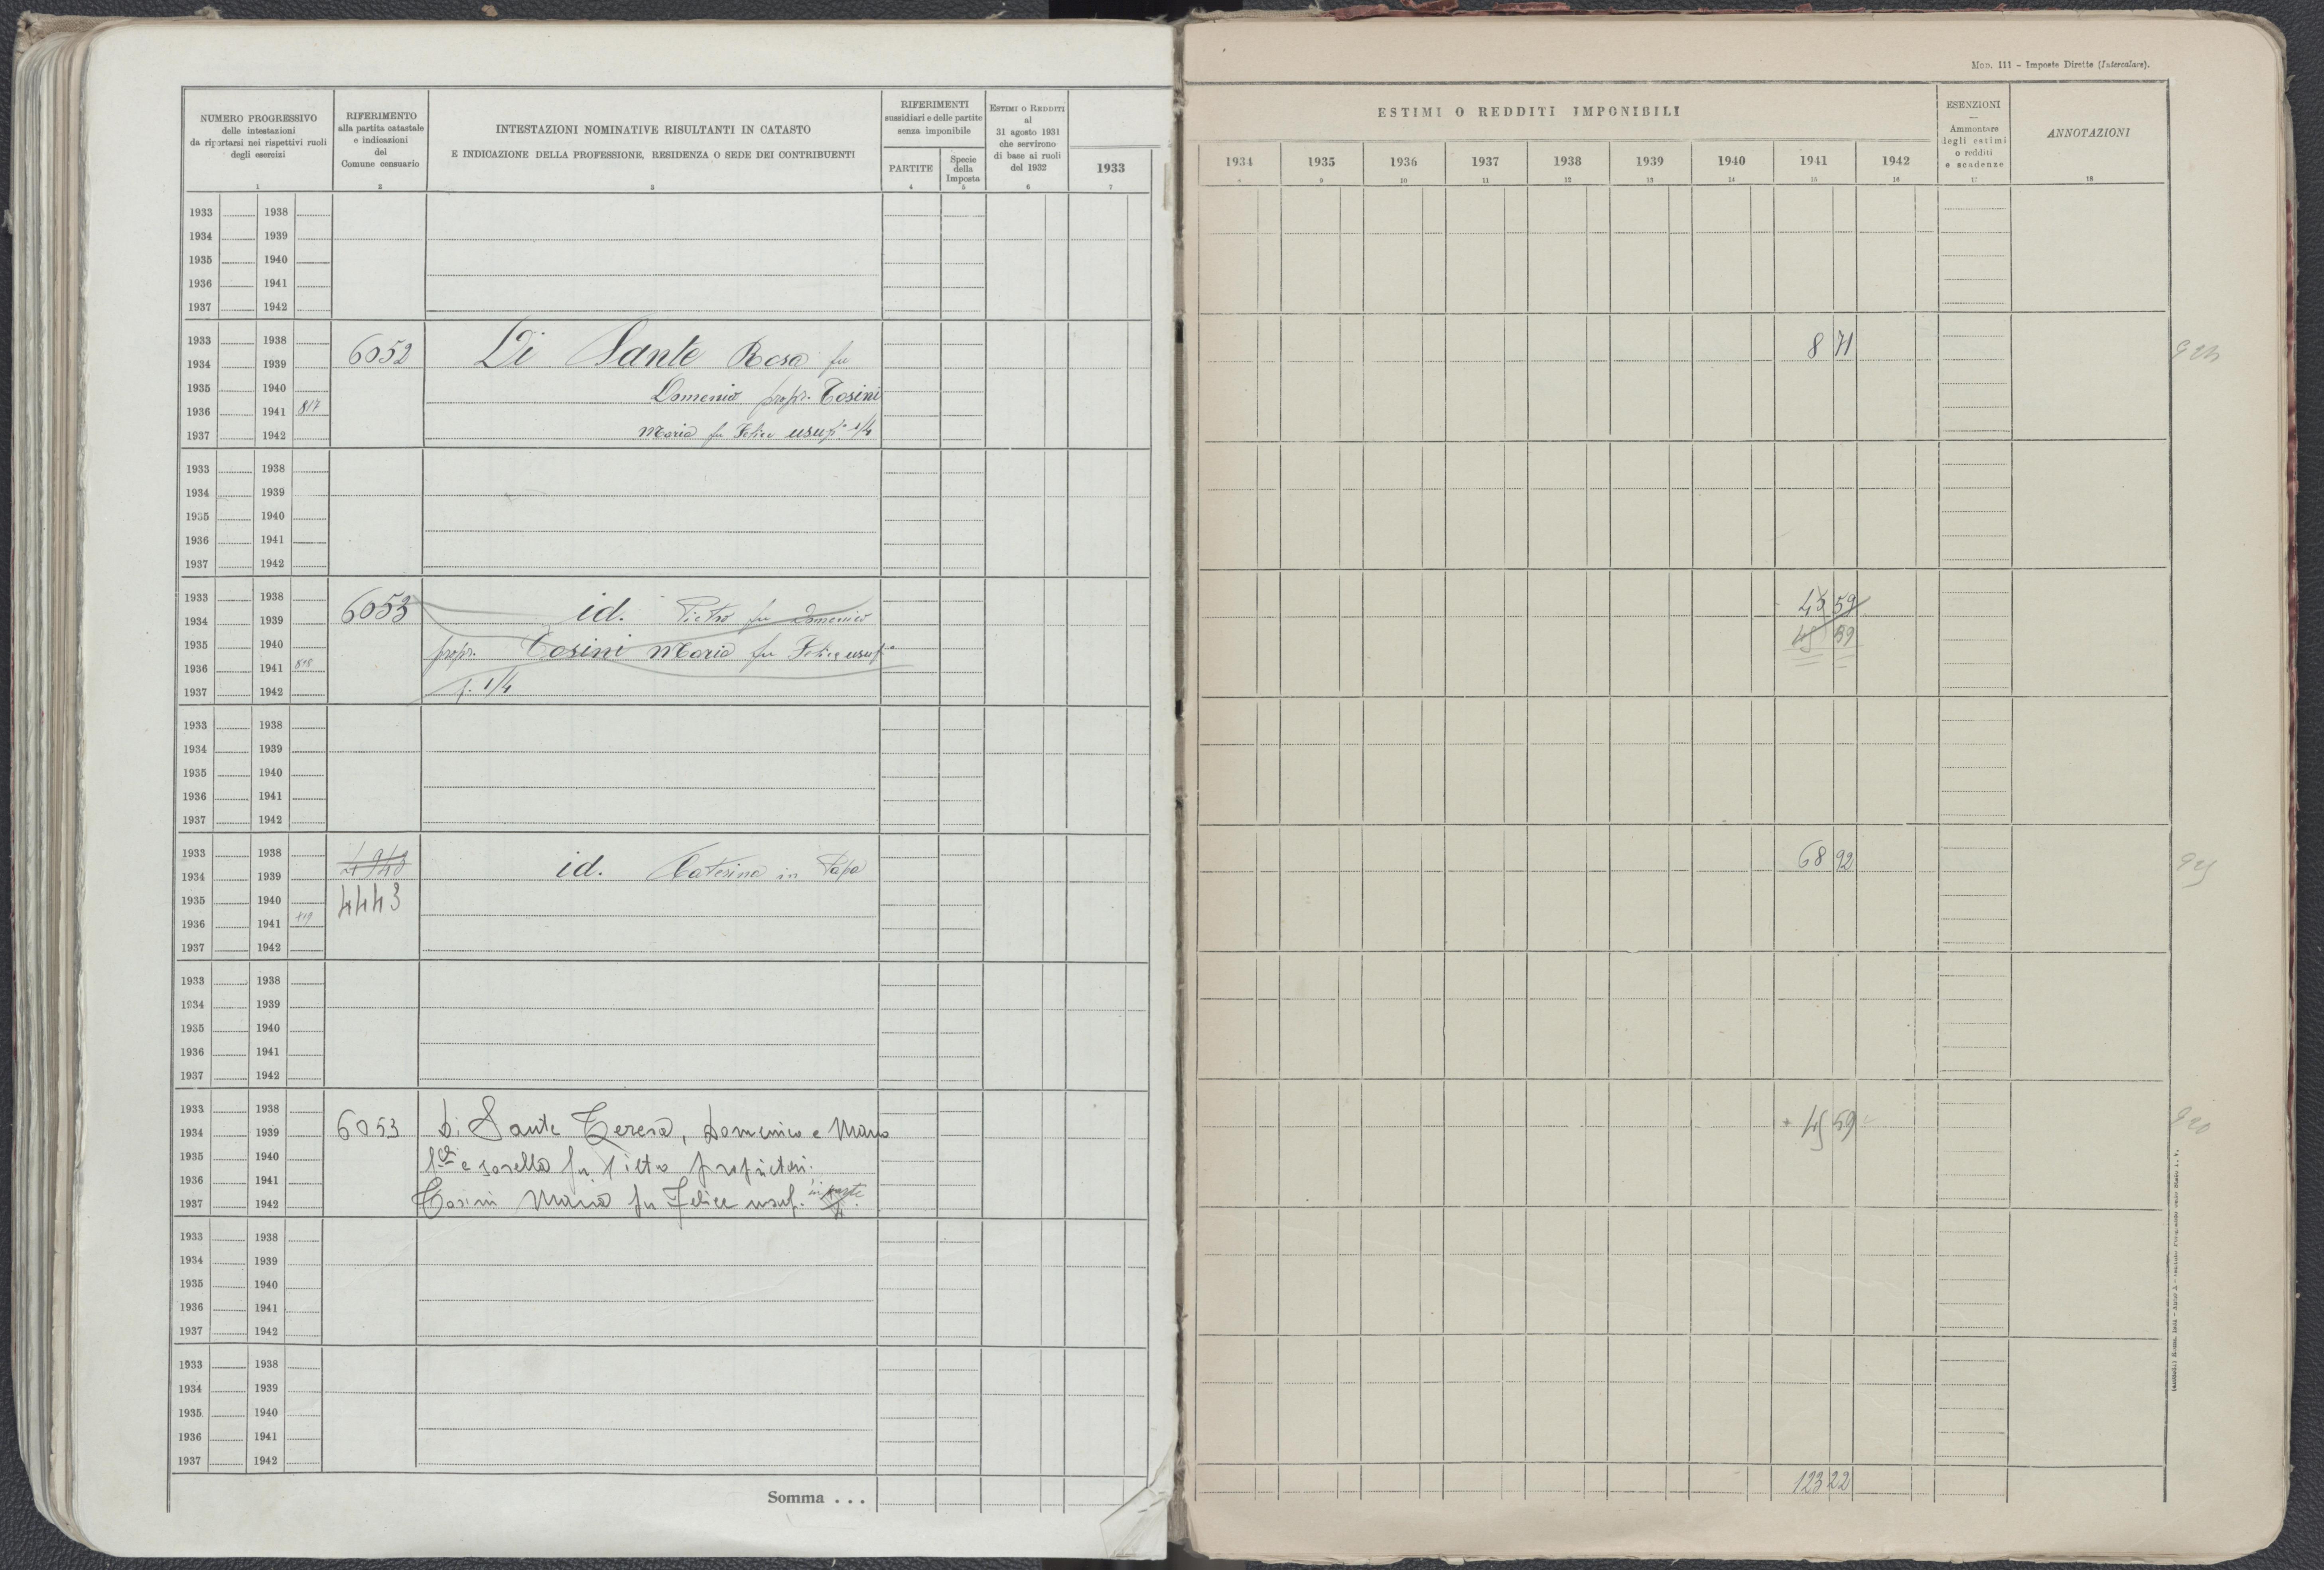 Mod. 111 - Imposte Dirette (Intercalare).
NUMERO PROGRESSIVO
delle intestazioni
da riportarsi nei rispettivi ruoli
degli esercizi
1
RIFERIMENTO
alla partita catastale
e indicazioni
del
Comune censuario
2
INTESTAZIONI NOMINATIVE RISULTANTI IN CATASTO
E INDICAZIONE DELLA PROFESSIONE, RESIDENZA O SEDE DEI CONTRIBUENTI
3
RIFERIMENTI
sussidiari e delle partite
senza imponibile
PARTITE
4
Specie
della
Imposta
5
ESTIMI O REDDITI
al
31 agosto 1931
che servirono
di base ai ruoli
del 1932
6
1933
7
ESTIMI O REDDITI IMPONIBILI
1934 1935 1936 1937 1938 1939 1940 1941 1942
8 9 10 11 12 13 14 15 16
ESENZIONI
Ammontare
degli estimi
o redditi
e scadenze
17
ANNOTAZIONI
18
1933 1938
1934 1939
1935 1940
1936 1941
1937 1942
1933 1938
1934 1939 6052 Di Sante Rosa fu 8 71
1935 1940 Domenico propr. Cosini
1936 1941 817
1937 1942 Maria fu Felice usuf. 1/4
1933 1938
1934 1939
1935 1940
1936 1941
1937 1942
1933 1938 45 59
1934 1939 6053 id. Pietro fu Domenico
1935 1940 propr. Cosini Maria fu Felice usuf. 45 59
1936 1941 818
1937 1942 p. 1/4
1933 1938
1934 1939
1935 1940
1936 1941
1937 1942
1933 1938 4940 68 92
1934 1939 id. Caterina in Papa
1935 1940 4443
1936 1941 819
1937 1942
1933 1938
1934 1939
1935 1940
1936 1941
1937 1942
1933 1938
1934 1939 6053 Di Sante Teresa, Domenico e Mario 45 59
1935 1940 e sorella fu Pietro proprietari.
1936 1941 in parte
1937 1942 Cosini Maria fu Felice usuf.
1933 1938
1934 1939
1935 1940
1936 1941
1937 1942
1933 1938
1934 1939
1935 1940
1936 1941
1937 1942
Somma . . . 123 22